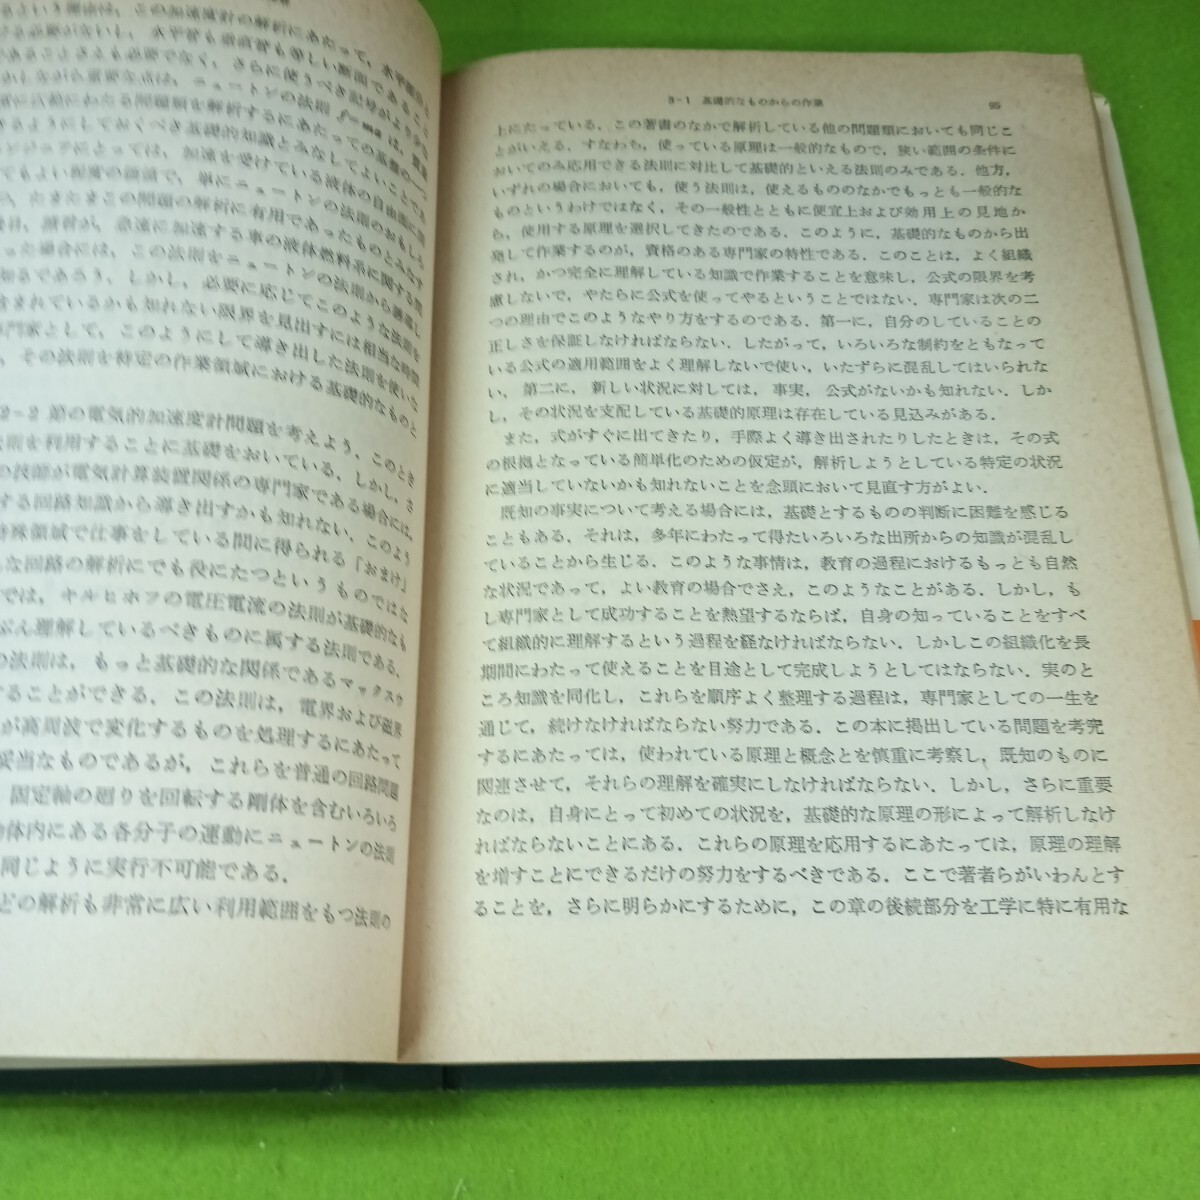 という理由は，この加速度計の解析にあたって，水平部分と
必要がないし，水平管も垂直管も等しい断面であること
であることさえも必要でなく，さらに使うべき記号がより少な
しかしながら重要な点は，ニュートンの法則 f=ma は，質量
常に広範にわたる問題類を解析するにあたっての基礎の一つ
きるようにしておくべき基礎的知識とみなしてよいことであ
ンジニアによっては，加速を受けている液体の自由面に関
てもよい程度の価値で，単にニュートンの法則のおもしろ
，たまたまこの問題の解析に有用であったものとみなす
後日，読者が，急速に加速する車の液体燃料系に関する問
った場合には，この法則をニュートンの法則から誘導し
知るであろう．しかし，必要に応じてこのような法則を
含まれているかも知れない限界を見出すには相当な時間
専門家として，このようにして導き出した法則を使いた
，その法則を特定の作業領域における基礎的なものと
2-2 節の電気的加速度計問題を考えよう．このとき
法則を利用することに基礎をおいている．しかし，さ
の技師が電気計算装置関係の専門家である場合には，
する回路知識から導き出すかも知れない．このよう
特殊領域で仕事をしている間に得られる「おまけ」
な回路の解析にでも役にたつというものではな
では，キルヒホフの電圧電流の法則が基礎的なも
ぶん理解しているべきものに属する法則である．
の法則は，もっと基礎的な関係であるマックスウ
することができる．この法則は，電界および磁界
が高周波で変化するものを処理するにあたって
妥当なものであるが，これらを普通の回路問題
固定軸の廻りを回転する剛体を含むいろいろ
物体内にある各分子の運動にニュートンの法則
同じように実行不可能である．
どの解析も非常に広い利用範囲をもつ法則の
3-1 基礎的なものからの作業 95
上にたっている．この著書のなかで解析している他の問題類においても同じこ
とがいえる．すなわち，使っている原理は一般的なもので，狭い範囲の条件に
おいてのみ応用できる法則に対比して基礎的といえる法則のみである．他方，
いずれの場合においても，使う法則は，使えるもののなかでもっとも一般的な
ものというわけではなく，その一般性とともに便宜上および効用上の見地か
ら，使用する原理を選択してきたのである．このように，基礎的なものから出
発して作業するのが，資格のある専門家の特性である．このことは，よく組織
され，かつ完全に理解している知識で作業することを意味し，公式の限界を考
慮しないで，やたらに公式を使ってやるということではない．専門家は次の二
つの理由でこのようなやり方をするのである．第一に，自分のしていることの
正しさを保証しなければならない．したがって，いろいろな制約をともなって
いる公式の適用範囲をよく理解しないで使い，いたずらに混乱してはいられな
い，第二に，新しい状況に対しては，事実，公式がないかも知れない．しか
し，その状況を支配している基礎的原理は存在している見込みがある．
また，式がすぐに出てきたり，手際よく導き出されたりしたときは，その式
の根拠となっている簡単化のための仮定が，解析しようとしている特定の状況
に適当していないかも知れないことを念頭において見直す方がよい．
既知の事実について考える場合には，基礎とするものの判断に困難を感じる
こともある．それは，多年にわたって得たいろいろな出所からの知識が混乱し
ていることから生じる．このような事情は，教育の過程におけるもっとも自然
な状況であって，よい教育の場合でさえ，このようなことがある．しかし，も
し専門家として成功することを熱望するならば，自身の知っていることをすべ
て組織的に理解するという過程を経なければならない．しかしこの組織化を長
期間にわたって使えることを目途として完成しようとしてはならない．実のと
ころ知識を同化し，これらを順序よく整理する過程は，専門家としての一生を
通じて，続けなければならない努力である．この本に掲出している問題を考究
するにあたっては，使われている原理と概念とを慎重に考察し，既知のものに
関連させて，それらの理解を確実にしなければならない．しかし，さらに重要
なのは，自身にとって初めての状況を，基礎的な原理の形によって解析しなけ
ればならないことにある．これらの原理を応用するにあたっては，原理の理解
を増すことにできるだけの努力をするべきである．ここで著者らがいわんとす
ることを，さらに明らかにするために，この章の後続部分を工学に特に有用な